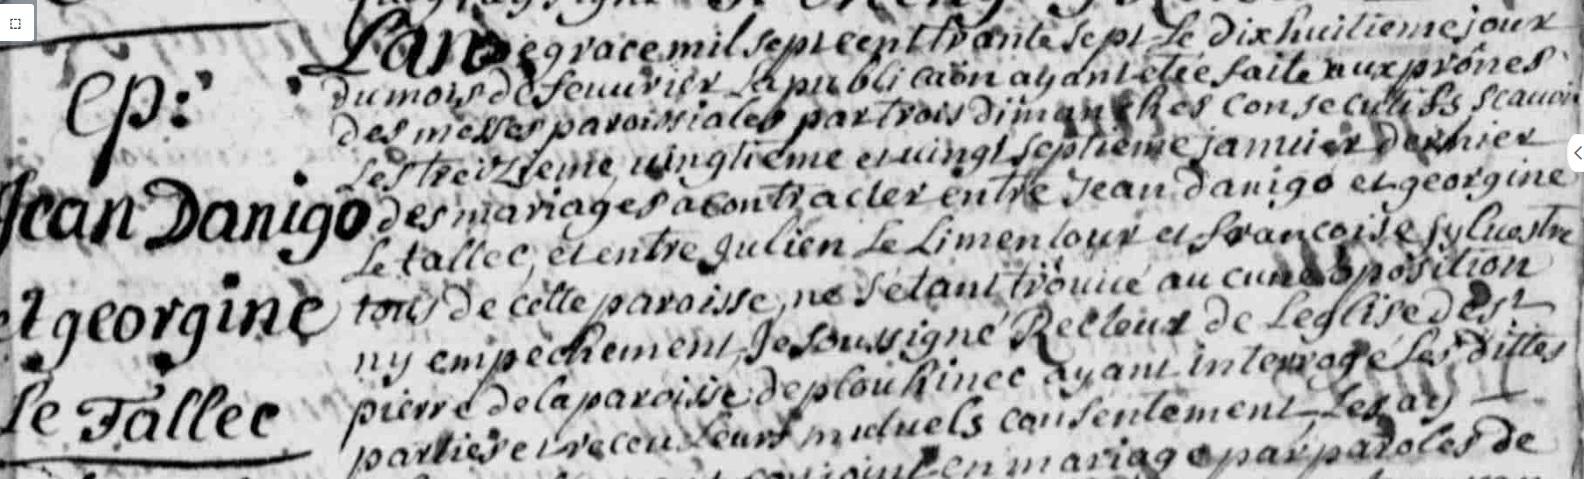 ep:
Jean Danigo
et georgine
Le Tallec
Lan de grace mil sept cent trante sept Le dixhuitieme jour
du mois de feuurier La publicaon ayant etée faite aux prônes
des messes paroissiales par trois dimanches consecutifs scauoir
Les treizieme, uingtieme et uingt septieme januier dernier
des mariages a contracter entre Jean danigo et georgine
Le tallec, et entre Julien Le Limentour et francoise syluestre
tous de cette paroisse, ne s'etant trouué aucune oposition
ny empechement, Je soussigné Recteur de Leglise de st
pierre de la paroisse de plouhinec ayant interrogé Les dittes
parties et receu Leurs mutuels consentement, Les ay
conjoint en mariage par paroles de